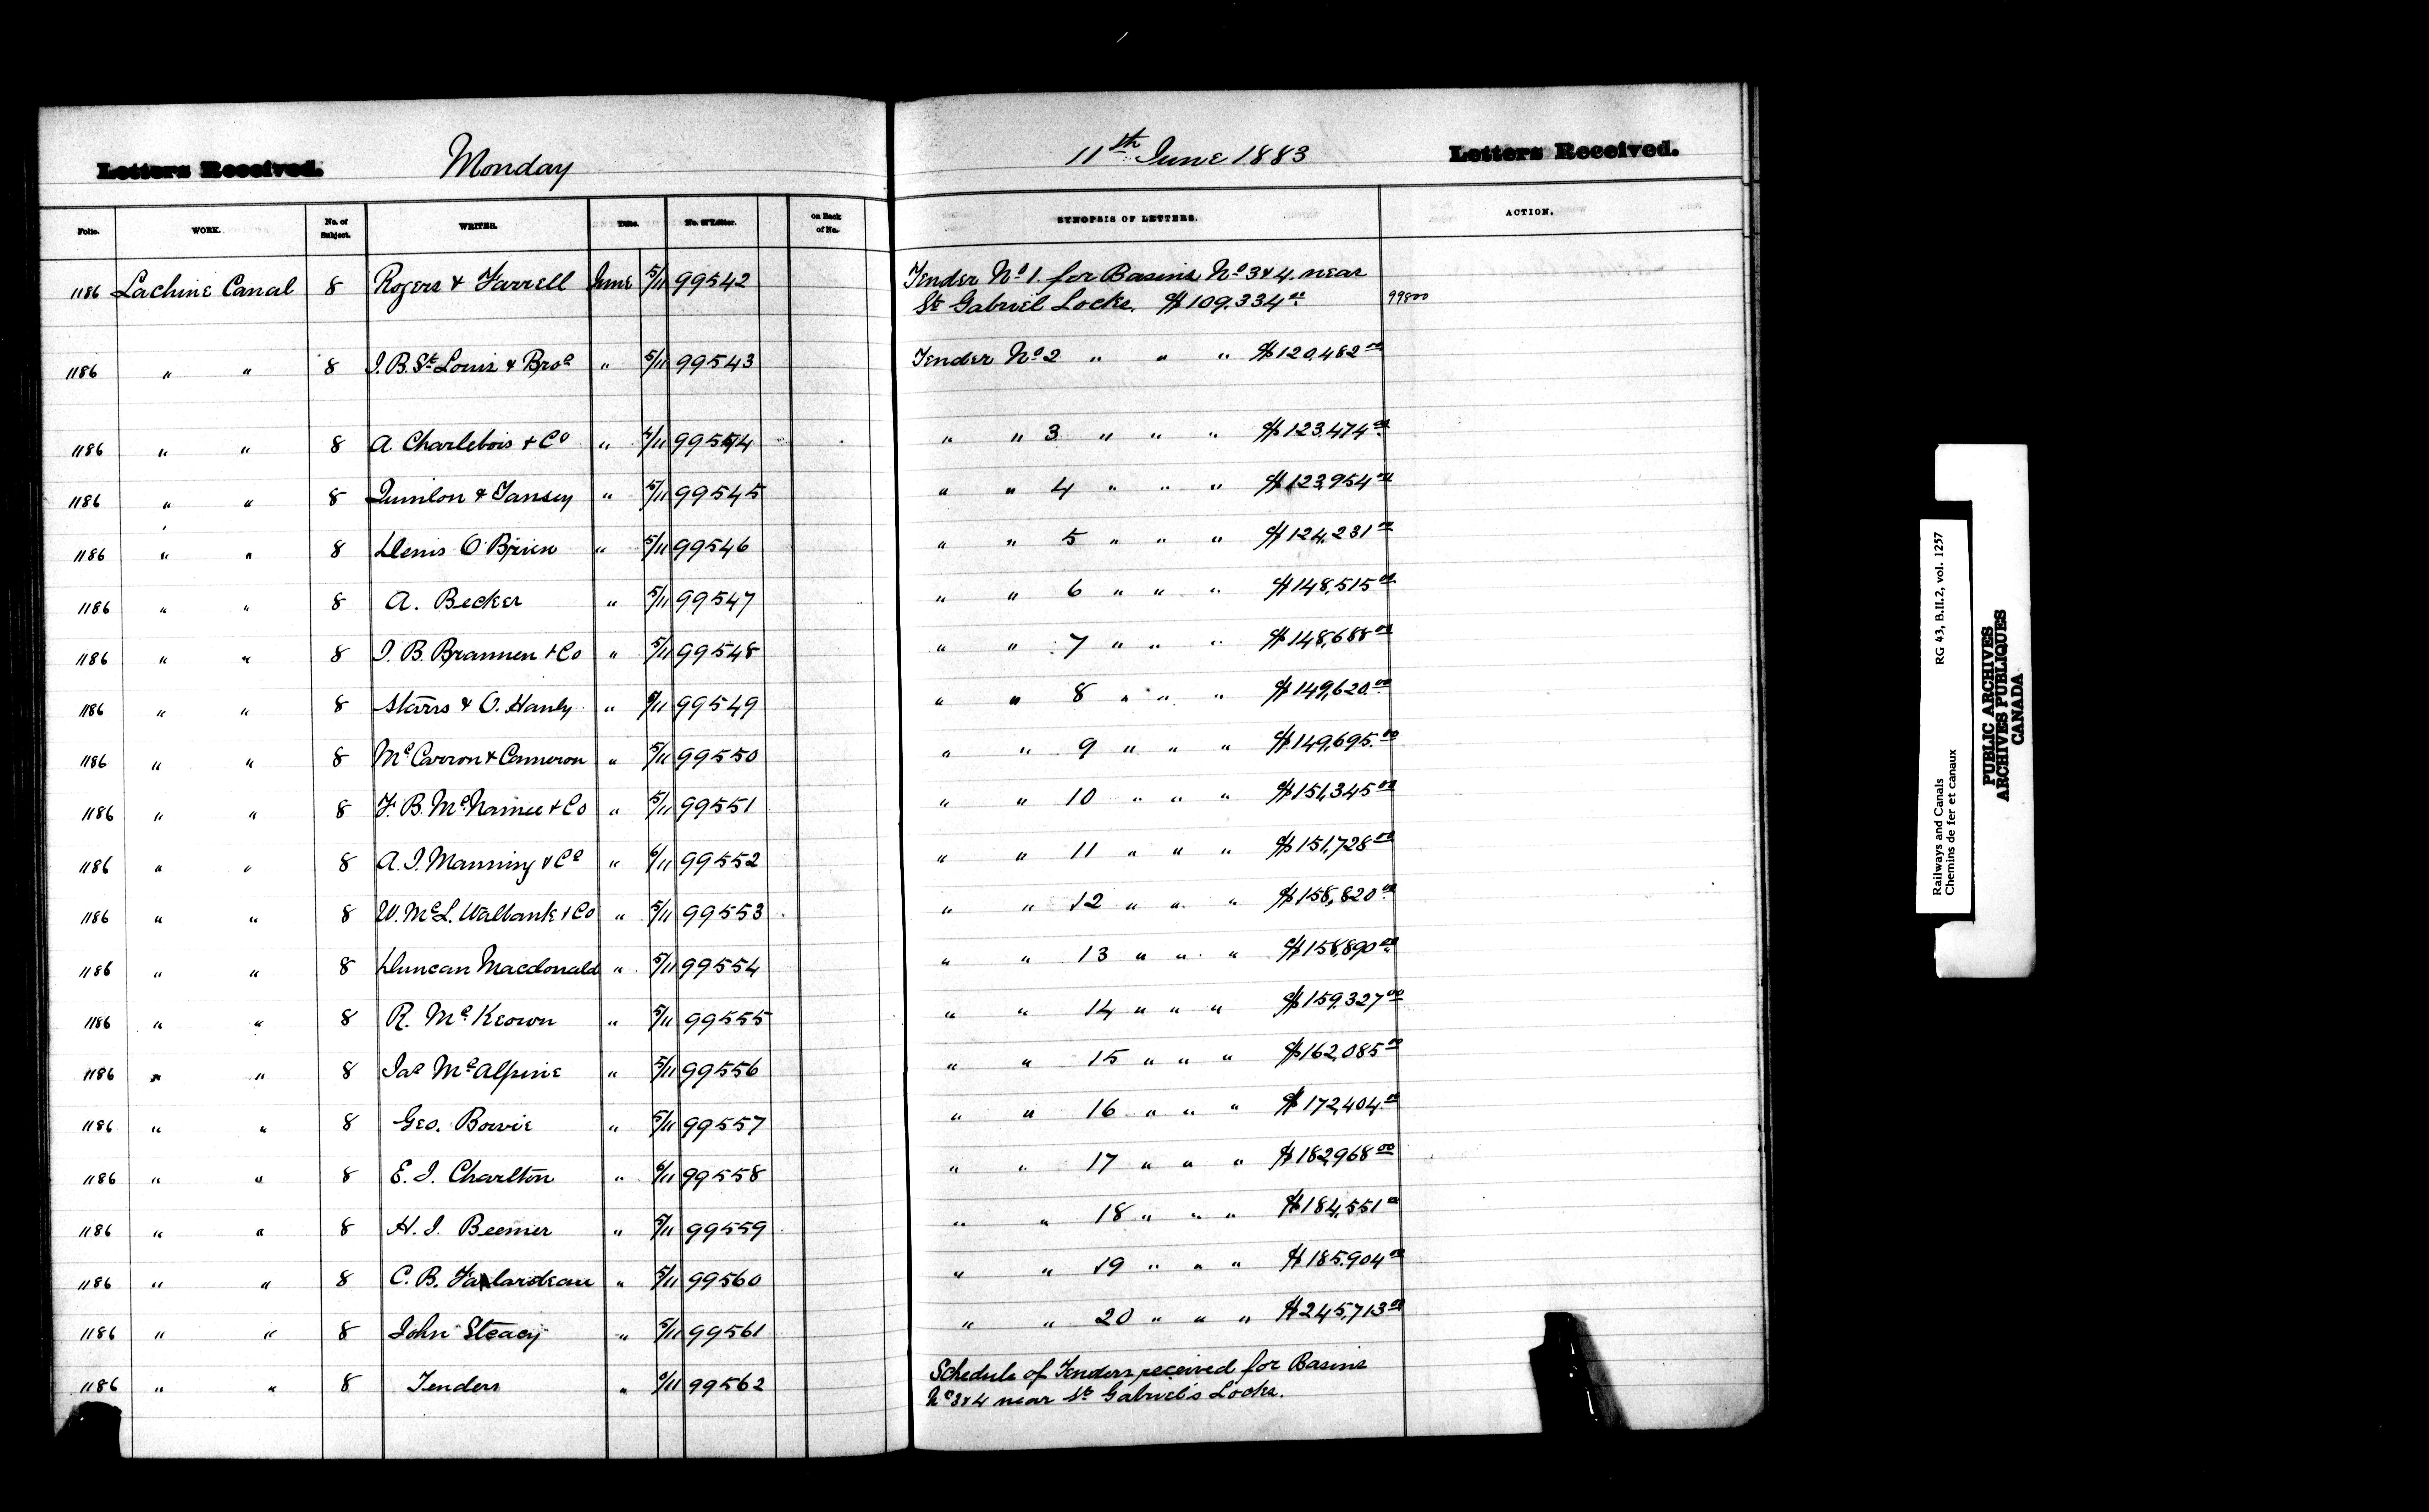 Letters Received. Monday 11th June 1883 Letters Received.
Folio. WORK. No. of Subject. WRITER. Date. No. of Letter. on Back of No. SYNOPSIS OF LETTERS. ACTION.
1186 Lachine Canal 8 Rogers & Farrell June 5/11 99542 Tender No 1. for Basins No 3 & 4. near
St Gabriel Locks. $109,334.00 99800
1186 " " 8 J. B. St Louis & Bros " 5/11 99543 Tender No 2 " " " $120,482.00
1186 " " 8 A. Charlebois & Co " 4/11 99544 " " 3 " " " $123,474.00
1186 " " 8 Quinlon & Tansey " 5/11 99545 " " 4 " " " $123,954.00
1186 " " 8 Denis O'Brien " 5/11 99546 " " 5 " " " $124,231.00
1186 " " 8 A. Becker " 5/11 99547 " " 6 " " " $148,515.00
1186 " " 8 J. B. Brannen & Co " 5/11 99548 " " 7 " " " $148,688.00
1186 " " 8 Starrs & O. Hanly " 5/11 99549 " " 8 " " " $149,620.00
1186 " " 8 McCarron & Cameron " 5/11 99550 " " 9 " " " $149,695.00
1186 " " 8 F. B. McNamee & Co " 5/11 99551 " " 10 " " " $151,345.00
1186 " " 8 A. J. Manning & Co " 6/11 99552 " " 11 " " " $151,728.00
1186 " " 8 W. McL. Walbank & Co " 5/11 99553 " " 12 " " " $158,820.00
1186 " " 8 Duncan Macdonald " 5/11 99554 " " 13 " " " $158,890.00
1186 " " 8 R. McKeown " 5/11 99555 " " 14 " " " $159,327.00
1186 " " 8 Jas McAlpine " 5/11 99556 " " 15 " " " $162,085.00
1186 " " 8 Geo. Bowie " 5/11 99557 " " 16 " " " $172,404.00
1186 " " 8 E. J. Charlton " 6/11 99558 " " 17 " " " $182,968.00
1186 " " 8 H. J. Beemer " 5/11 99559 " " 18 " " " $184,551.00
1186 " " 8 C. B. Falardeau " 5/11 99560 " " 19 " " " $185,904.00
1186 " " 8 John Steacy " 5/11 99561 " " 20 " " " $245,713.00
1186 " " 8 Tenders " 99562 Schedule of Tenders received for Basins
No 3 & 4 near St Gabriel's Locks.
Railways and Canals RG 43, B.II.2, vol. 1257
Chemins de fer et canaux
PUBLIC ARCHIVES
ARCHIVES PUBLIQUES
CANADA